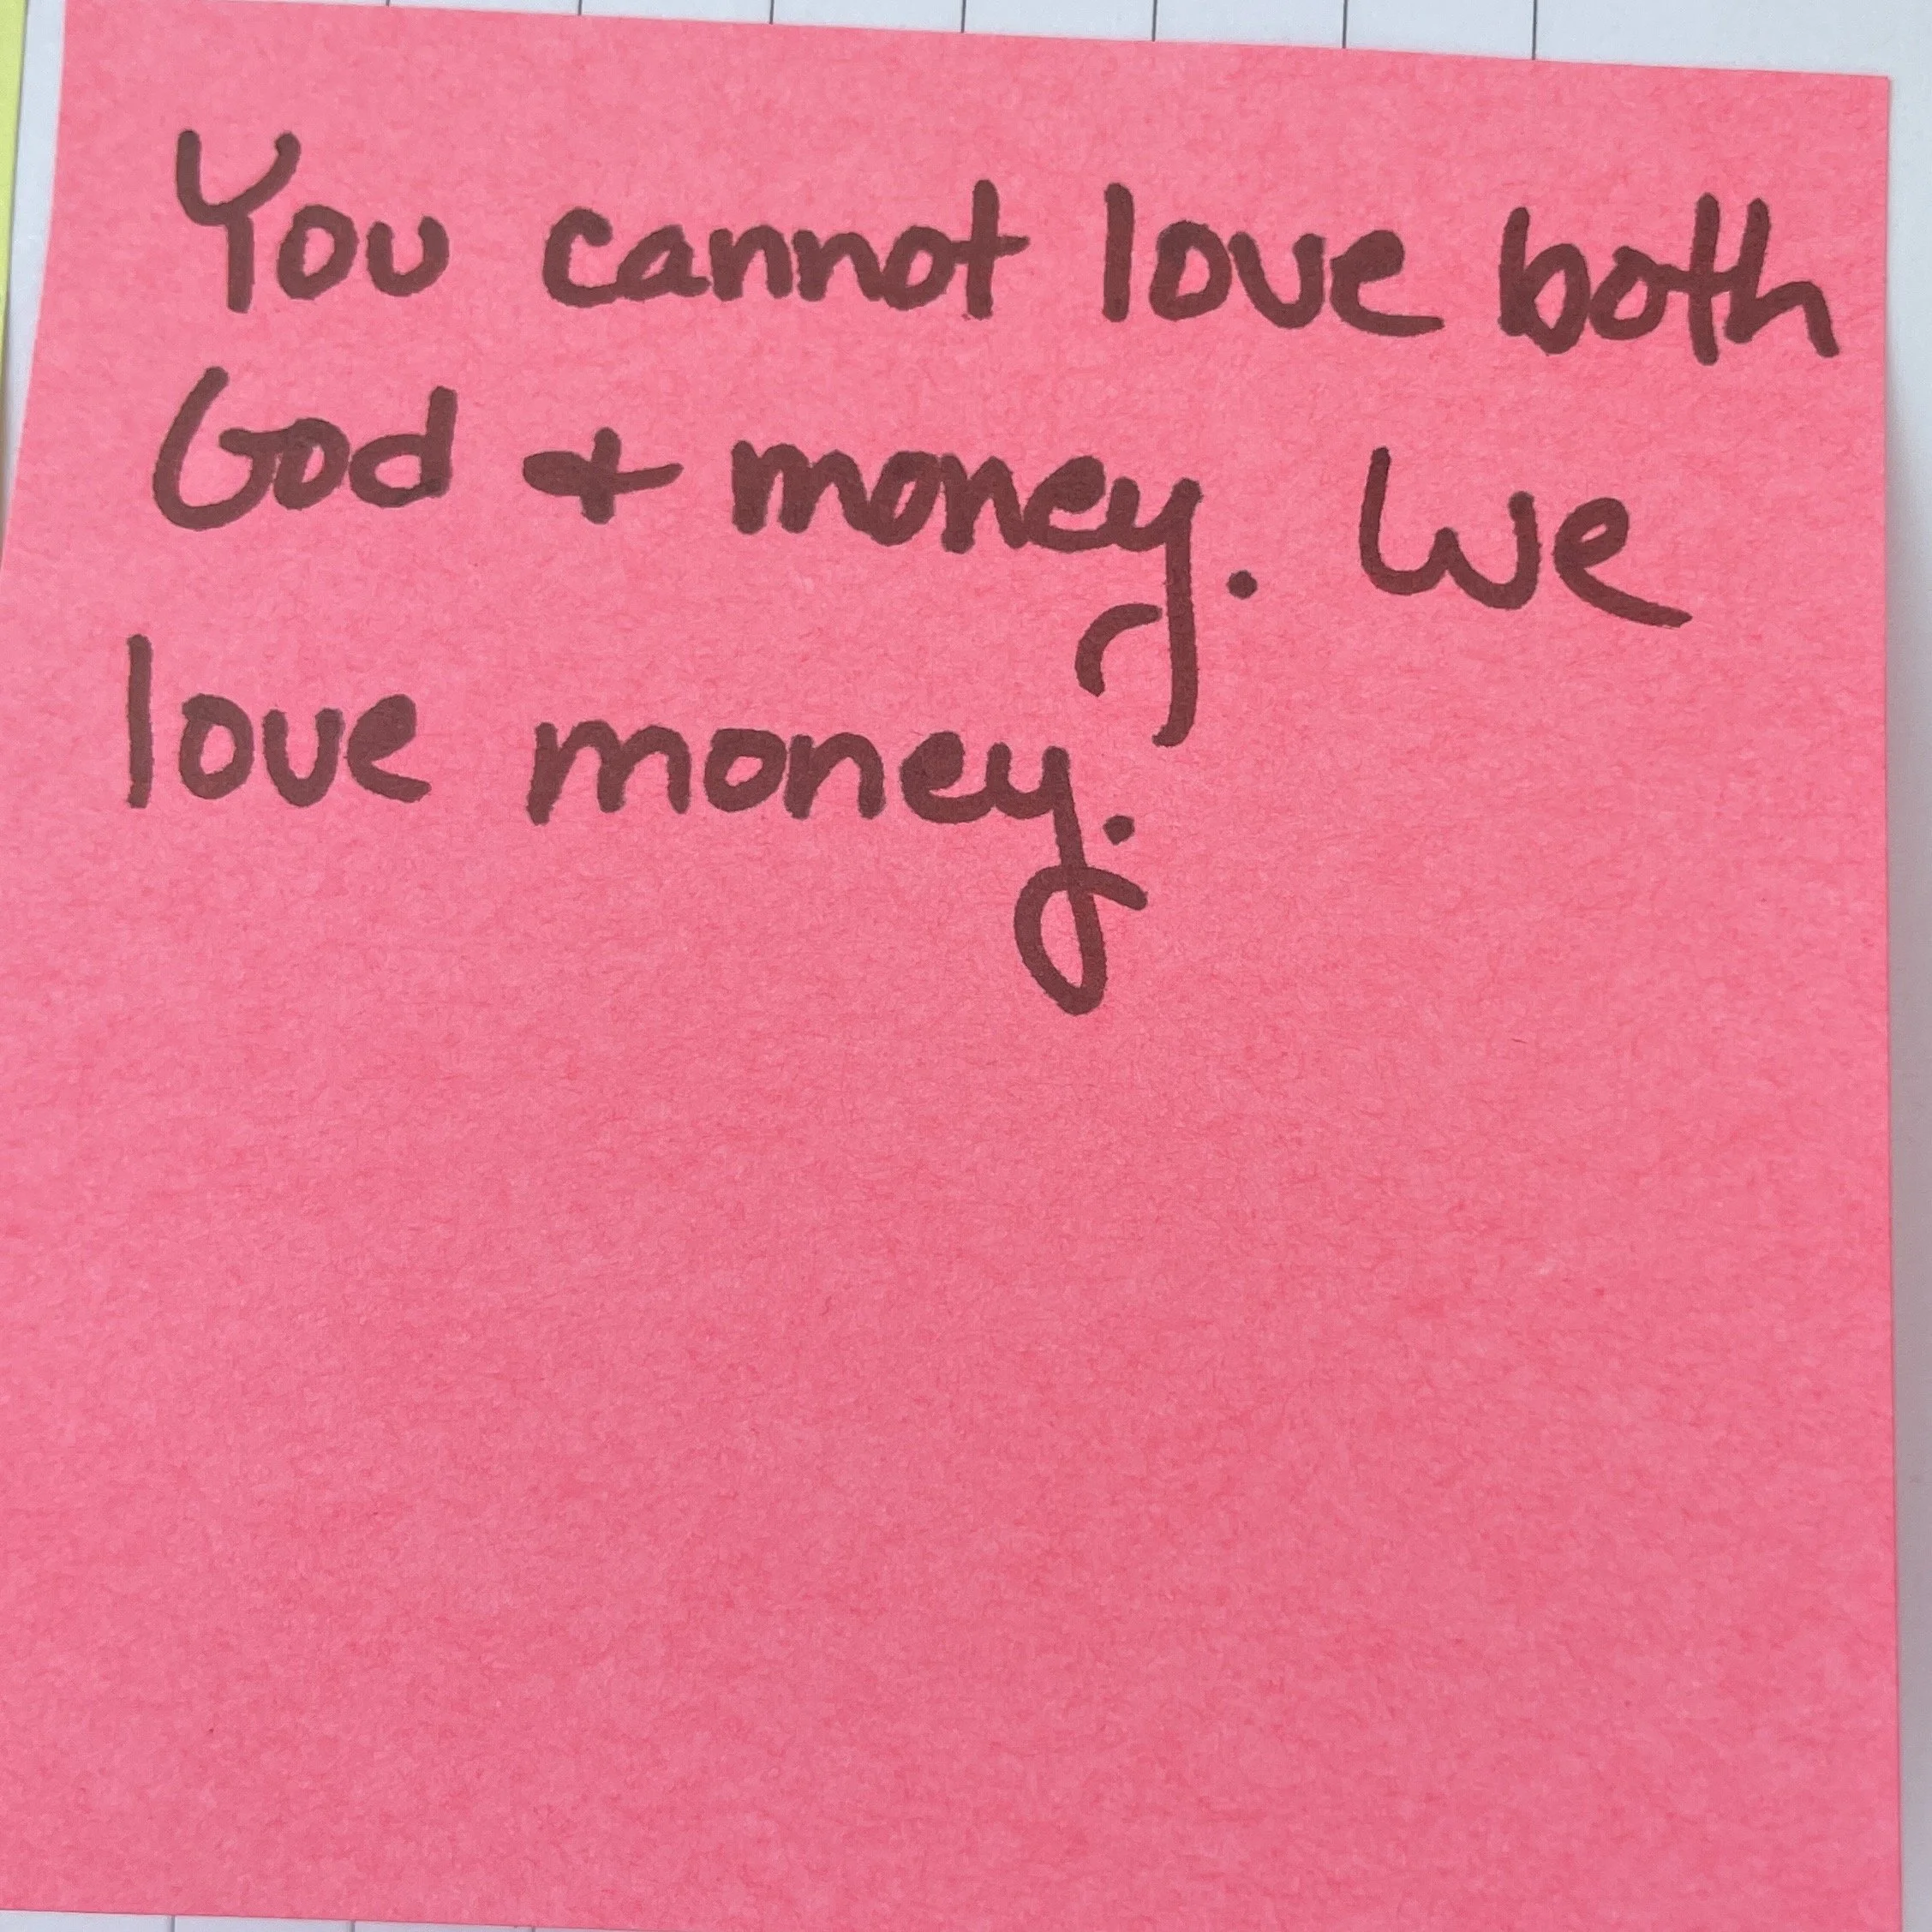 You cannot love both
God + money. We
love money.